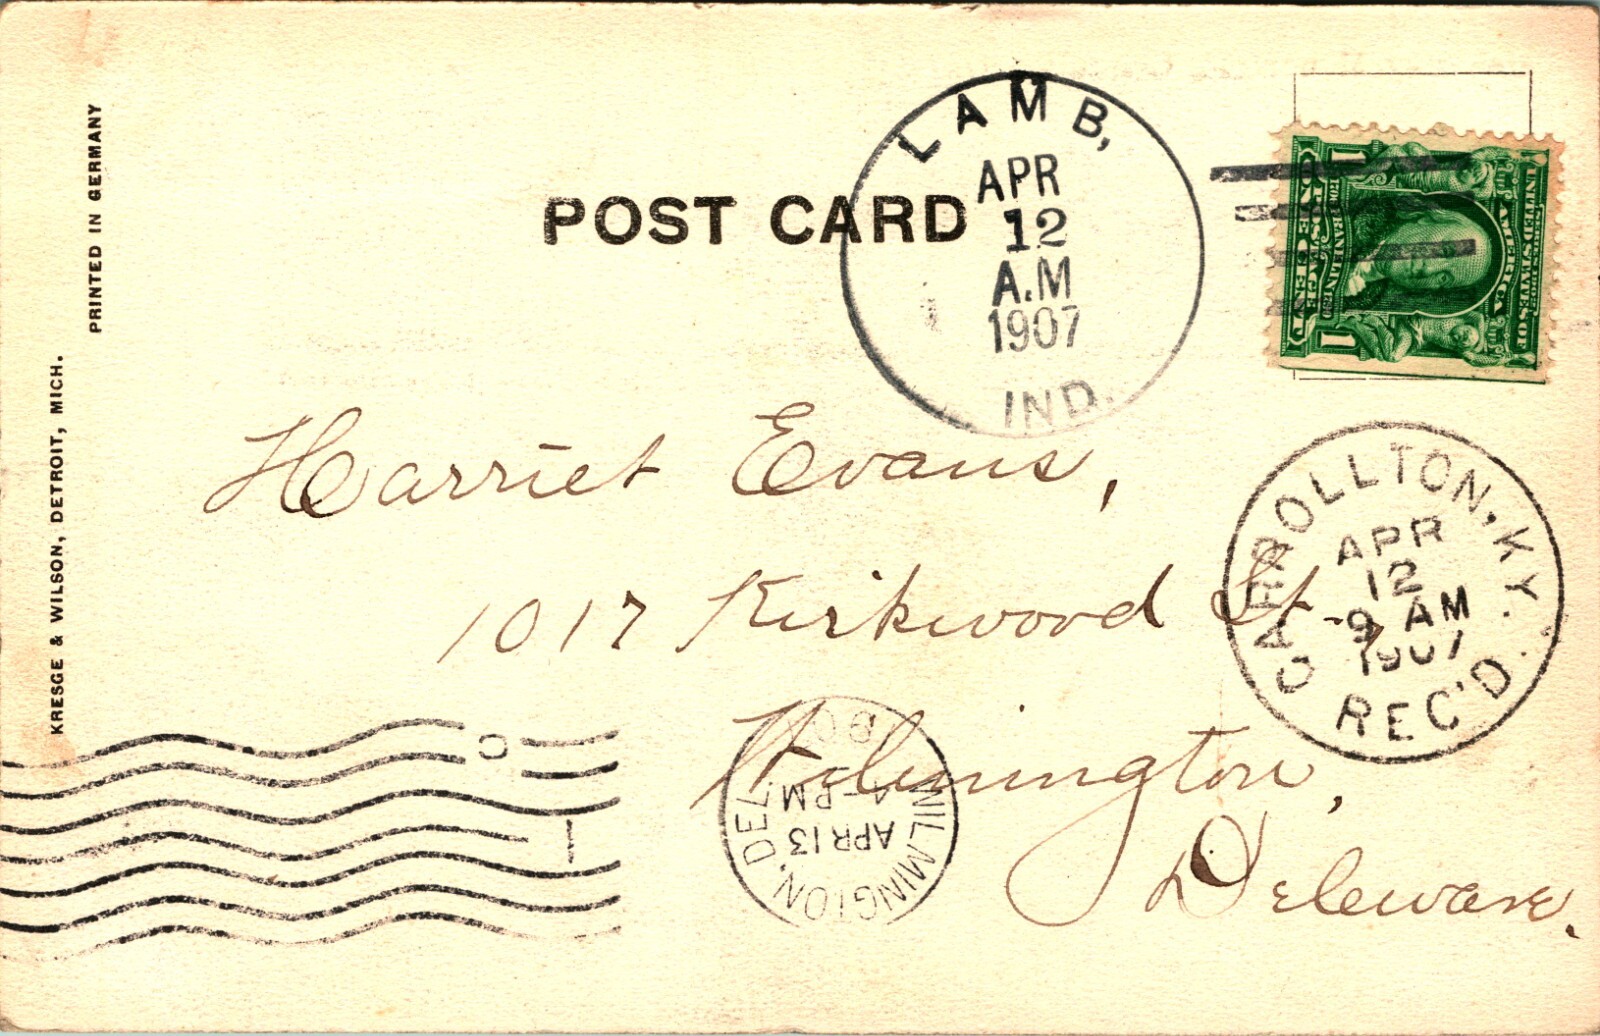 POST CARD
PRINTED IN GERMANY
KRESGE & WILSON, DETROIT, MICH.
LAMB,
APR
12
A.M
1907
IND.
1 1
SERIES 1902
UNITED STATES OF
AMERICA
FRANKLIN
POSTAGE
ONE CENT
Harriet Evans,
1017 Kirkwood St.,
Wilmington,
Deleware.
CARROLLTON, KY.
APR
12
9 AM
1907
REC'D.
WILMINGTON, DEL.
APR 13
-PM
C
1